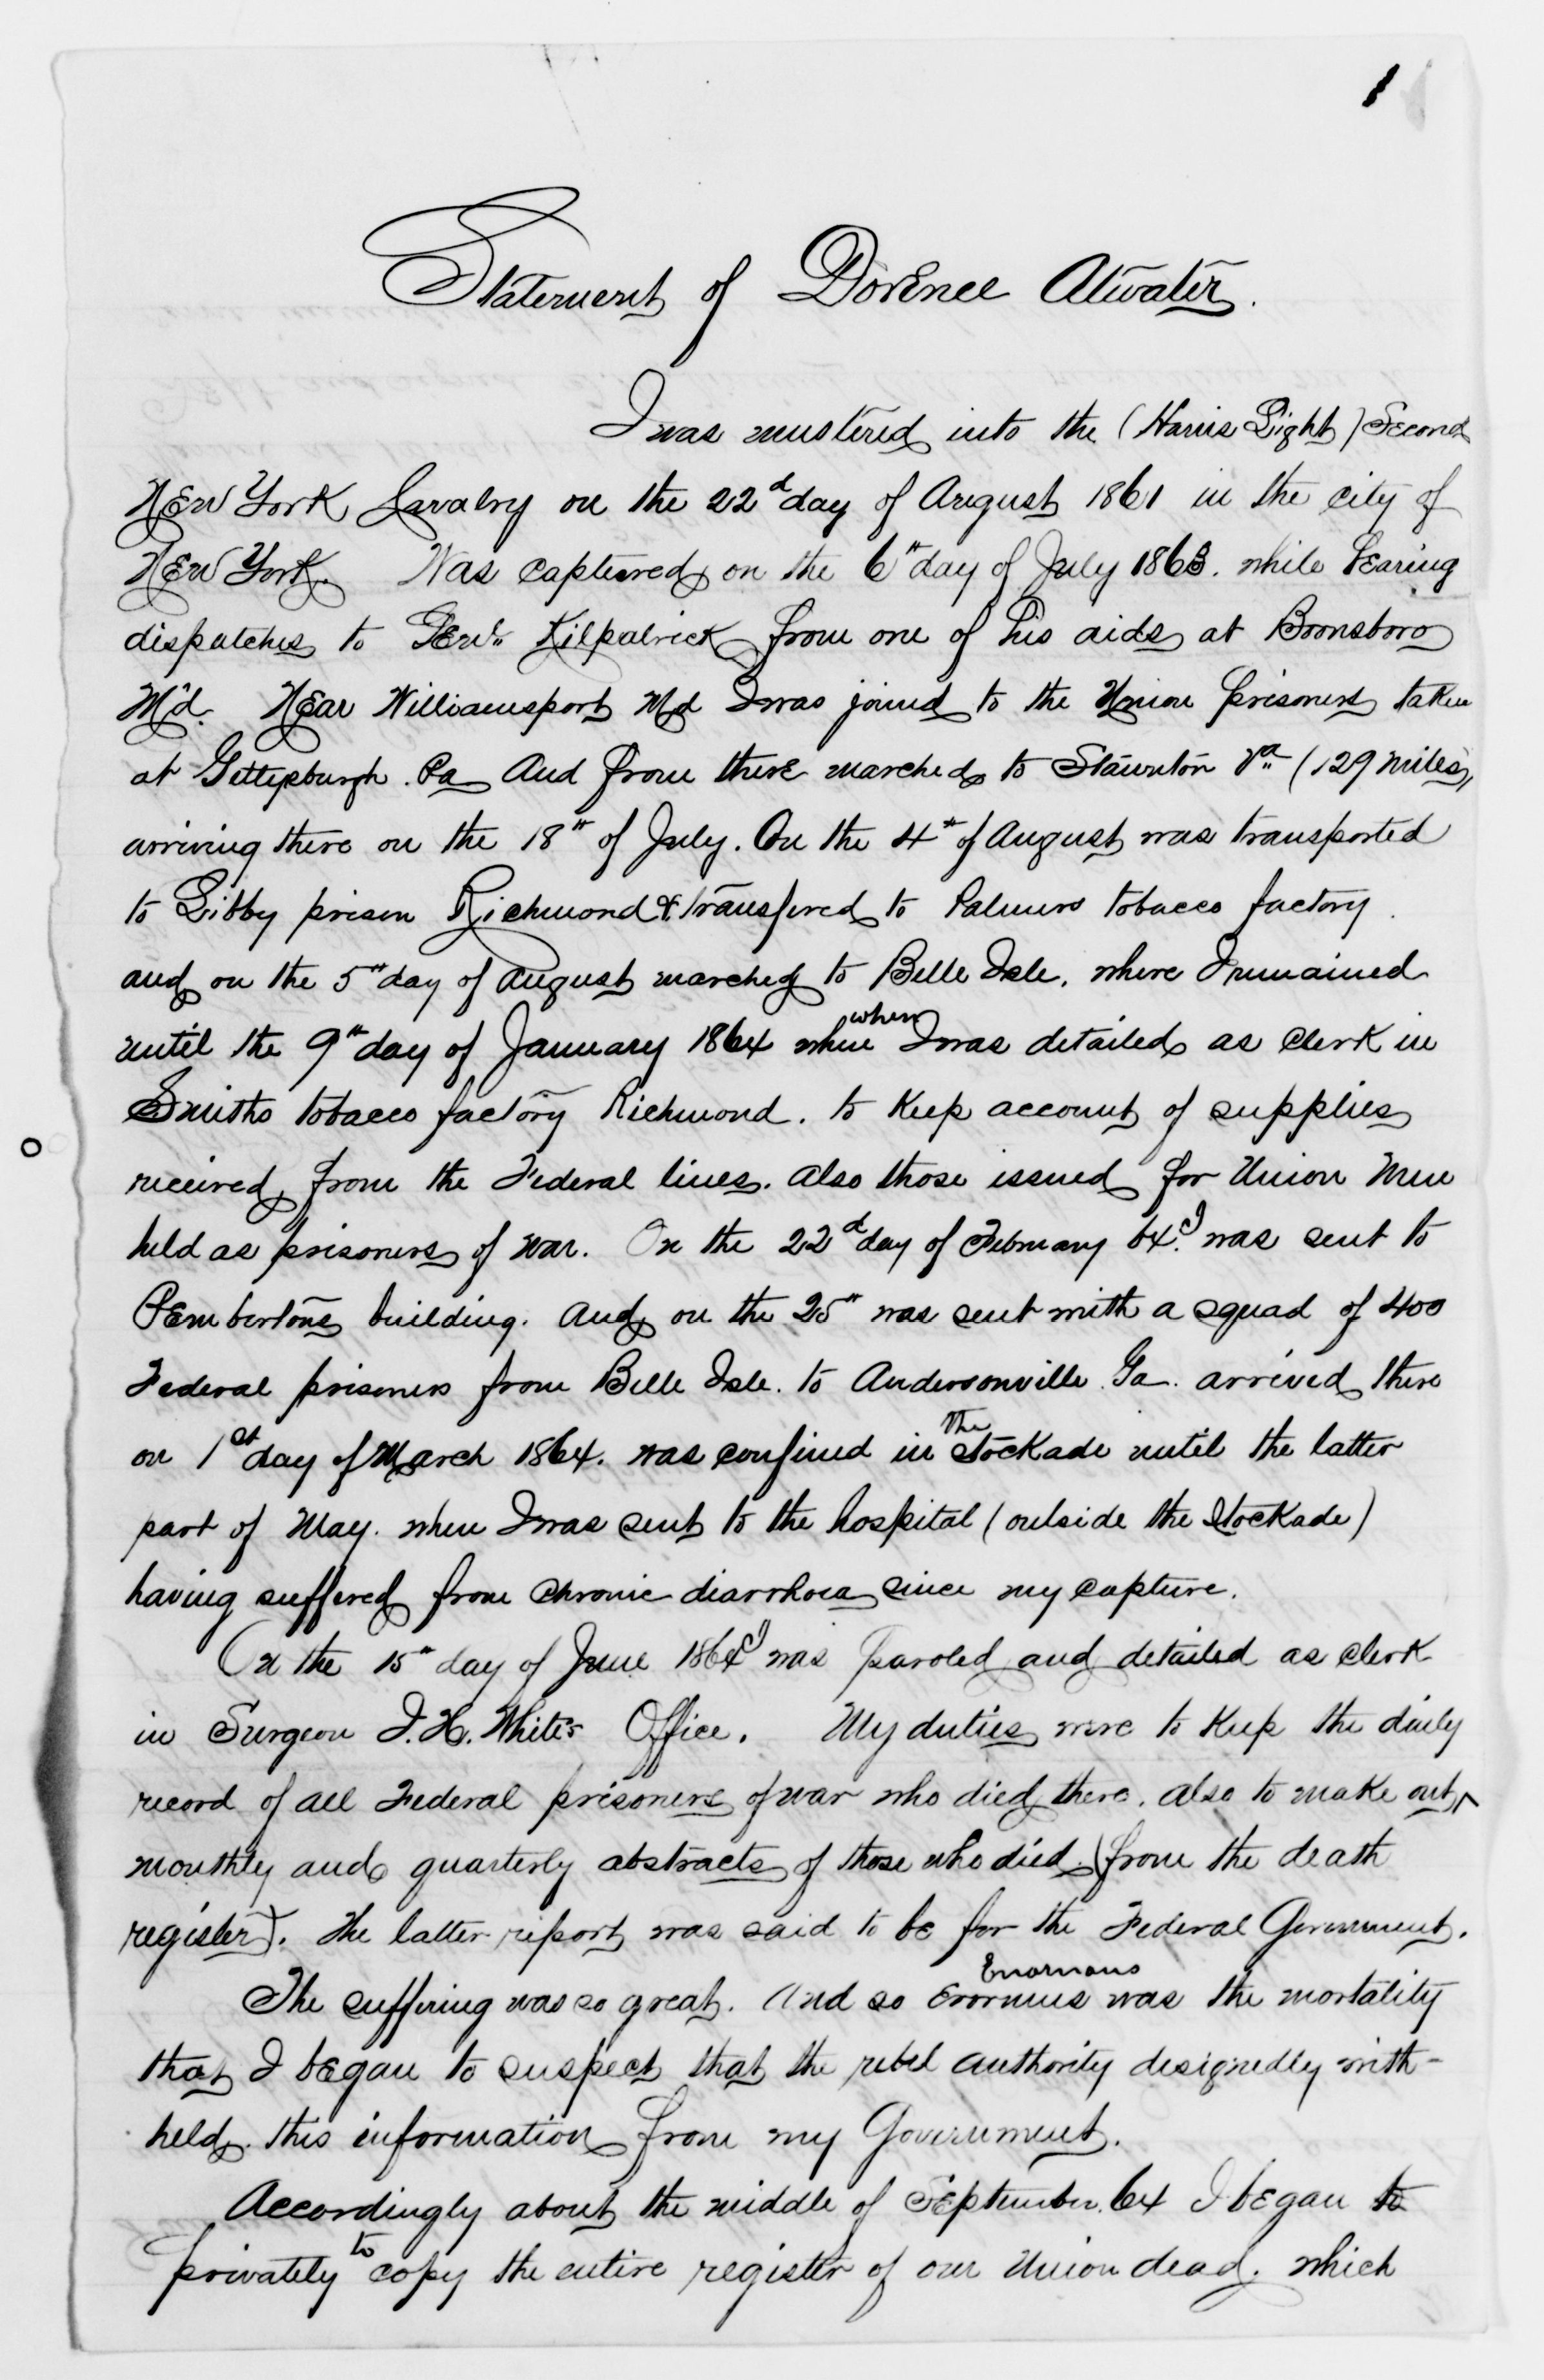 1
Statement of Dorence Atwater.
I was mustered into the (Harris Light) Second
New York Cavalry on the 22d day of August 1861 in the city of
New York. Was captured on the 6th day of July 1863. while bearing
dispatches to Genl. Kilpatrick from one of his aids at Boonsboro
Md. Near Williamsport Md I was joined to the Union prisoners taken
at Gettysburgh. Pa And from there marched to Staunton Va (129 miles)
arriving there on the 18th of July. On the 4th of August was transported
to Libby prison Richmond & transfered to Palmers tobacco factory.
and on the 5th day of August marched to Belle Isle, where I remained
when
until the 9th day of January 1864 when I was detailed as clerk in
Smiths tobacco factory Richmond. to Keep account of supplies
received from the Federal lines. also those issued for Union Men
held as prisoners of war. On the 22d day of February 64. I was sent to
Pembertons building. and on the 25th was sent with a squad of 400
Federal prisoners from Belle Isle. to Andersonville. Ga. arrived there
on 1st day of March 1864. was confined in the stockade until the latter
part of May. when I was sent to the hospital (outside the Stockade)
having suffered from chronic diarrhoea since my capture.
On the 15th day of June 1864 I was paroled and detailed as clerk
in Surgeon J. H. White's Office. My duties were to Keep the daily
record of all Federal prisoners of war who died there. also to make out
monthly and quarterly abstracts of those who died (from the death
register). The latter report was said to be for the Federal Government.
Enormous
The suffering was so great. And so Enormus was the mortality
that I began to suspect that the rebel authority designedly with-
held. this information from my Government.
Accordingly about the middle of September. 64 I began to
privately to copy the entire register of our Union dead. which